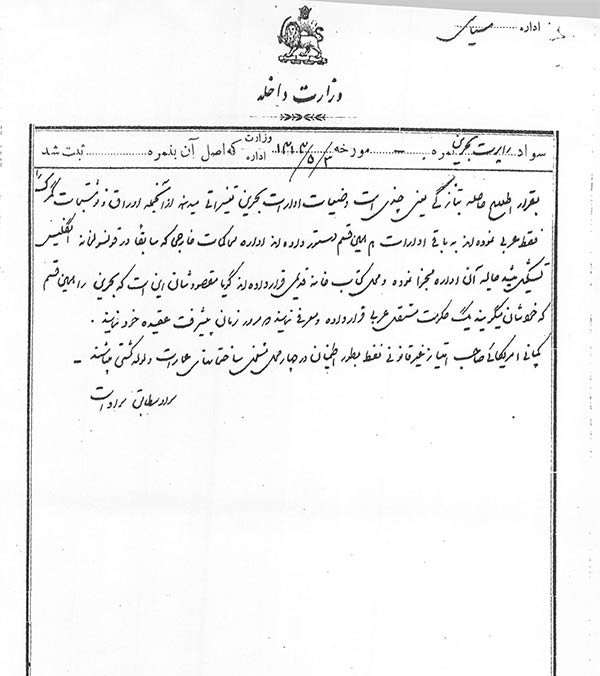 اداره سیاسی
وزارت داخله
سواد راپرت بحرین نمره ـ مورخه ۱۳۱۳/۵/۳ وزارت اداره که اصل آن بنمره ثبت شد
بقرار اطلاع حاصله بتازگی یعنی چندی است وضعیات ادارات بحرین تغییراتی میدهند از آنجمله اوراق و نوشتجات گمرک را
فقط عربی نموده اند به باقی ادارات هم همین قسم دستور داده اند اداره محاکمات خارجی که سابقاً در قونسولخانه انگلیس
تشکیل میشد حالیه آن اداره مجزا نموده و محل کتاب خانه قدیمی قرار داده اند گویا مقصودشان این است که بحرین را همین قسم
که خودشان میگویند یک حکومت مستقلی عربی قرار داده و معرفی نمایند و مرور زمان پیشرفت عقیده خود نمایند .
کمپانی امریکائی صاحب امتیاز غیر قانونی نفط بطور اطمینان در چهار محل مشغول ساختمانهای عمارات و لوله کشی میباشند ـ
سواد مطابق سواد است